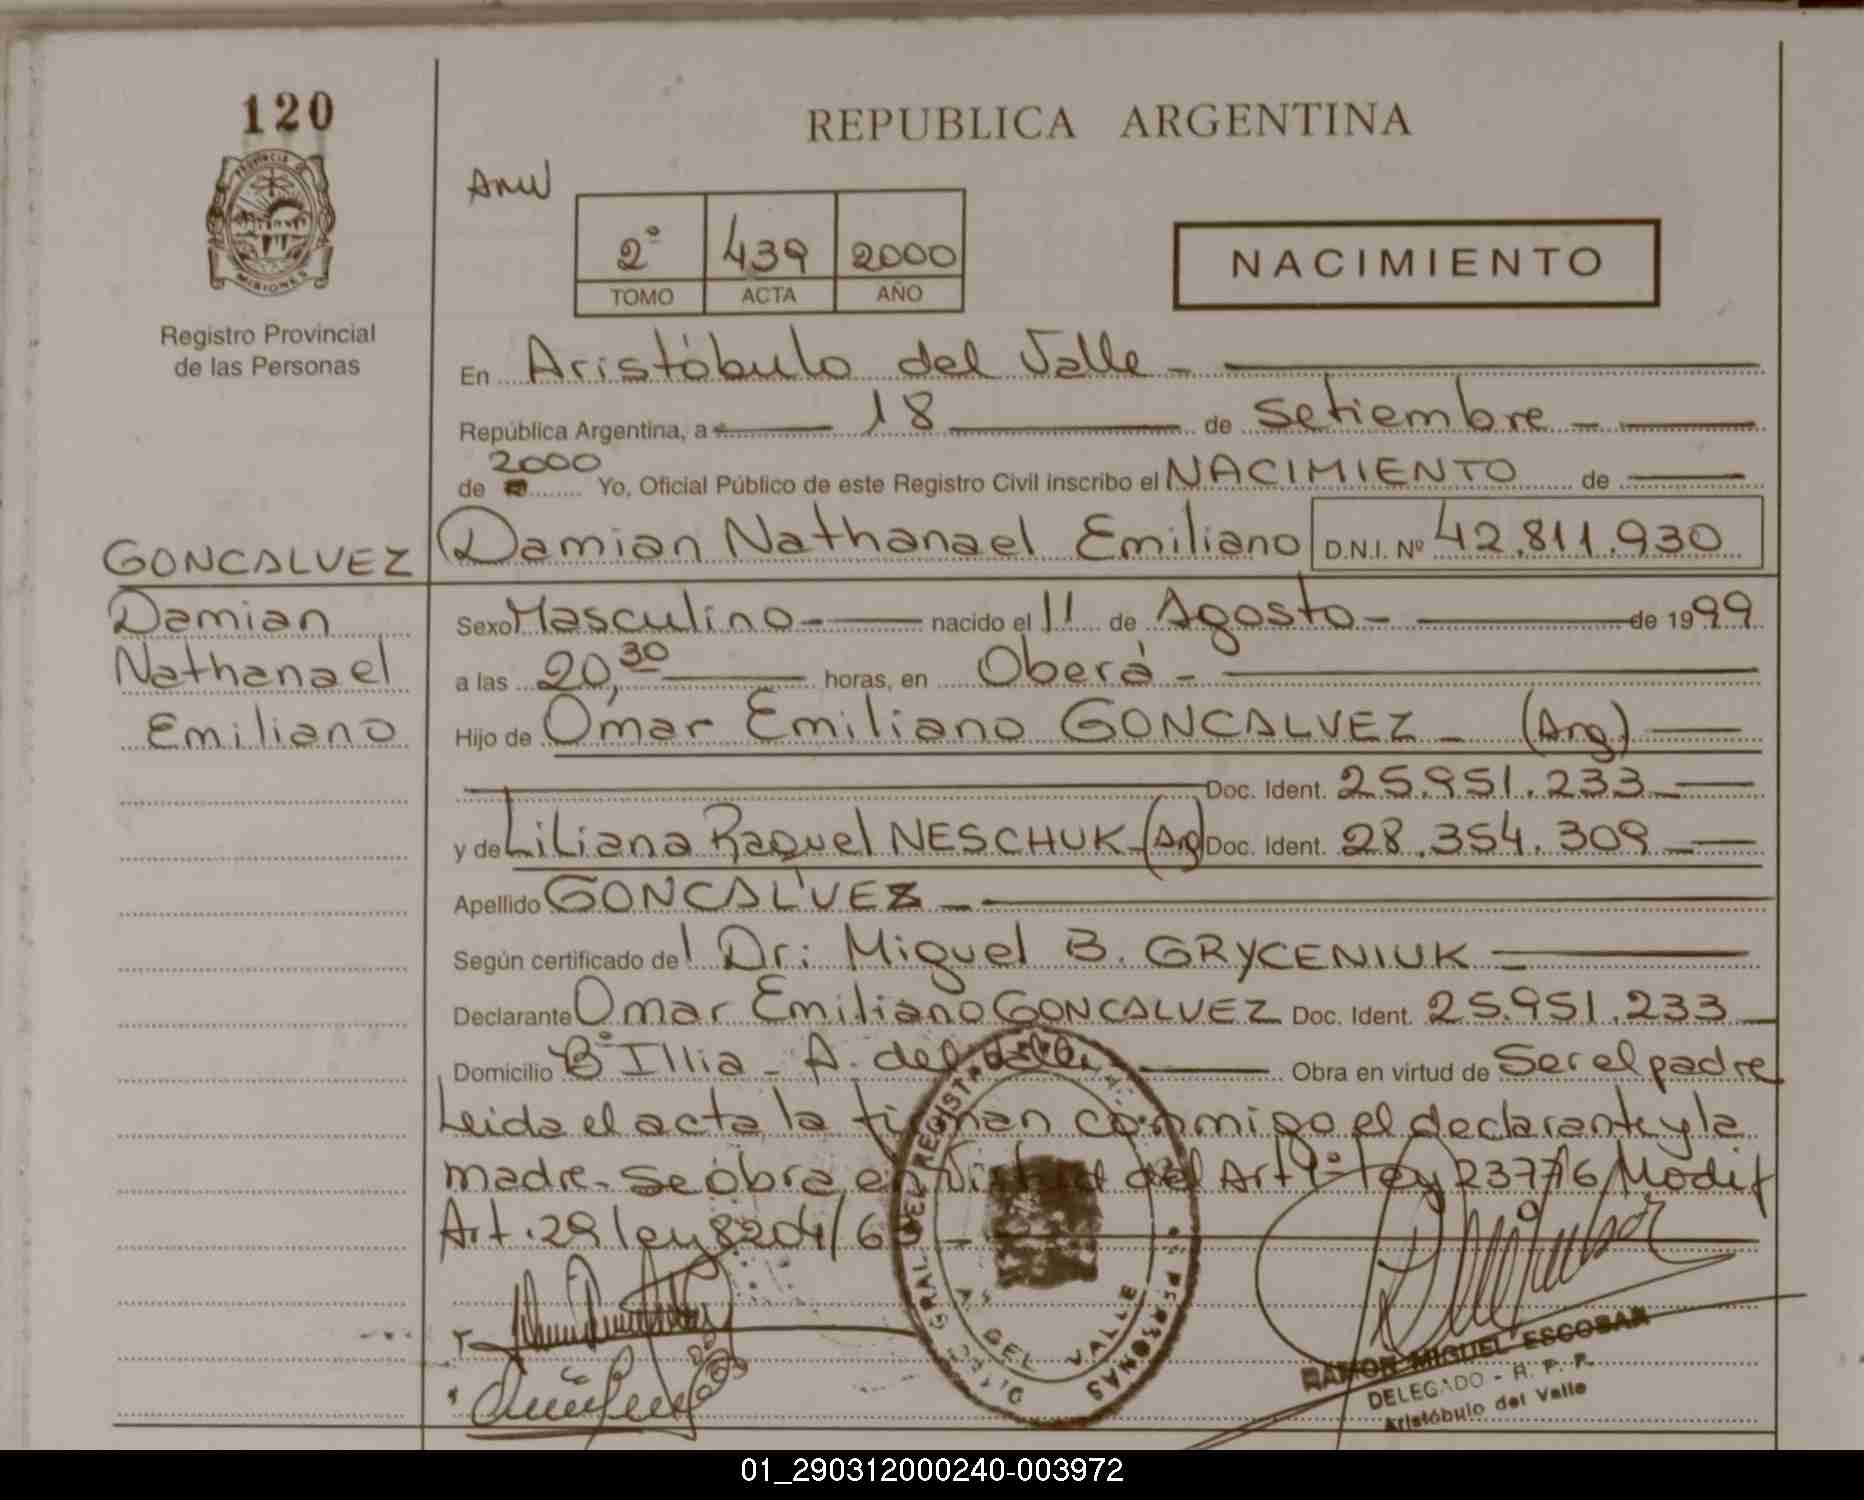 120
PROVINCIA DE
MISIONES
Registro Provincial
de las Personas
REPUBLICA ARGENTINA
2º 439 2000
TOMO ACTA AÑO
NACIMIENTO
En Aristóbulo del Valle -
República Argentina, a 18 de Setiembre -
2000
de Yo, Oficial Público de este Registro Civil inscribo el NACIMIENTO de
GONCALVEZ Damian Nathanael Emiliano D.N.I. Nº 42.811.930
Damian Sexo Masculino - nacido el 11 de Agosto - de 1999
Nathanael a las 20,30 horas, en Oberá -
Emiliano Hijo de Omar Emiliano GONCALVEZ - (Arg)
Doc. Ident. 25.951.233
y de Liliana Raquel NESCHUK - (Arg) Doc. Ident. 28.354.309
Apellido GONCALVEZ -
Según certificado del Dr: Miguel B. GRYCENIUK
Declarante Omar Emiliano GONCALVEZ Doc. Ident. 25.951.233
Domicilio Bº Illia - A. del Valle Obra en virtud de Ser el padre
Leida el acta la firman conmigo el declarante y la
madre - se obra en virtud del Art 1º Ley 23776 Modif
Art. 29 ley 8204/6
DEL REGISTRO
PERSONAS
DEL VALLE
RAMON MIGUEL ESCOBAR
DELEGADO - R. P. P.
Aristóbulo del Valle
01_290312000240-003972